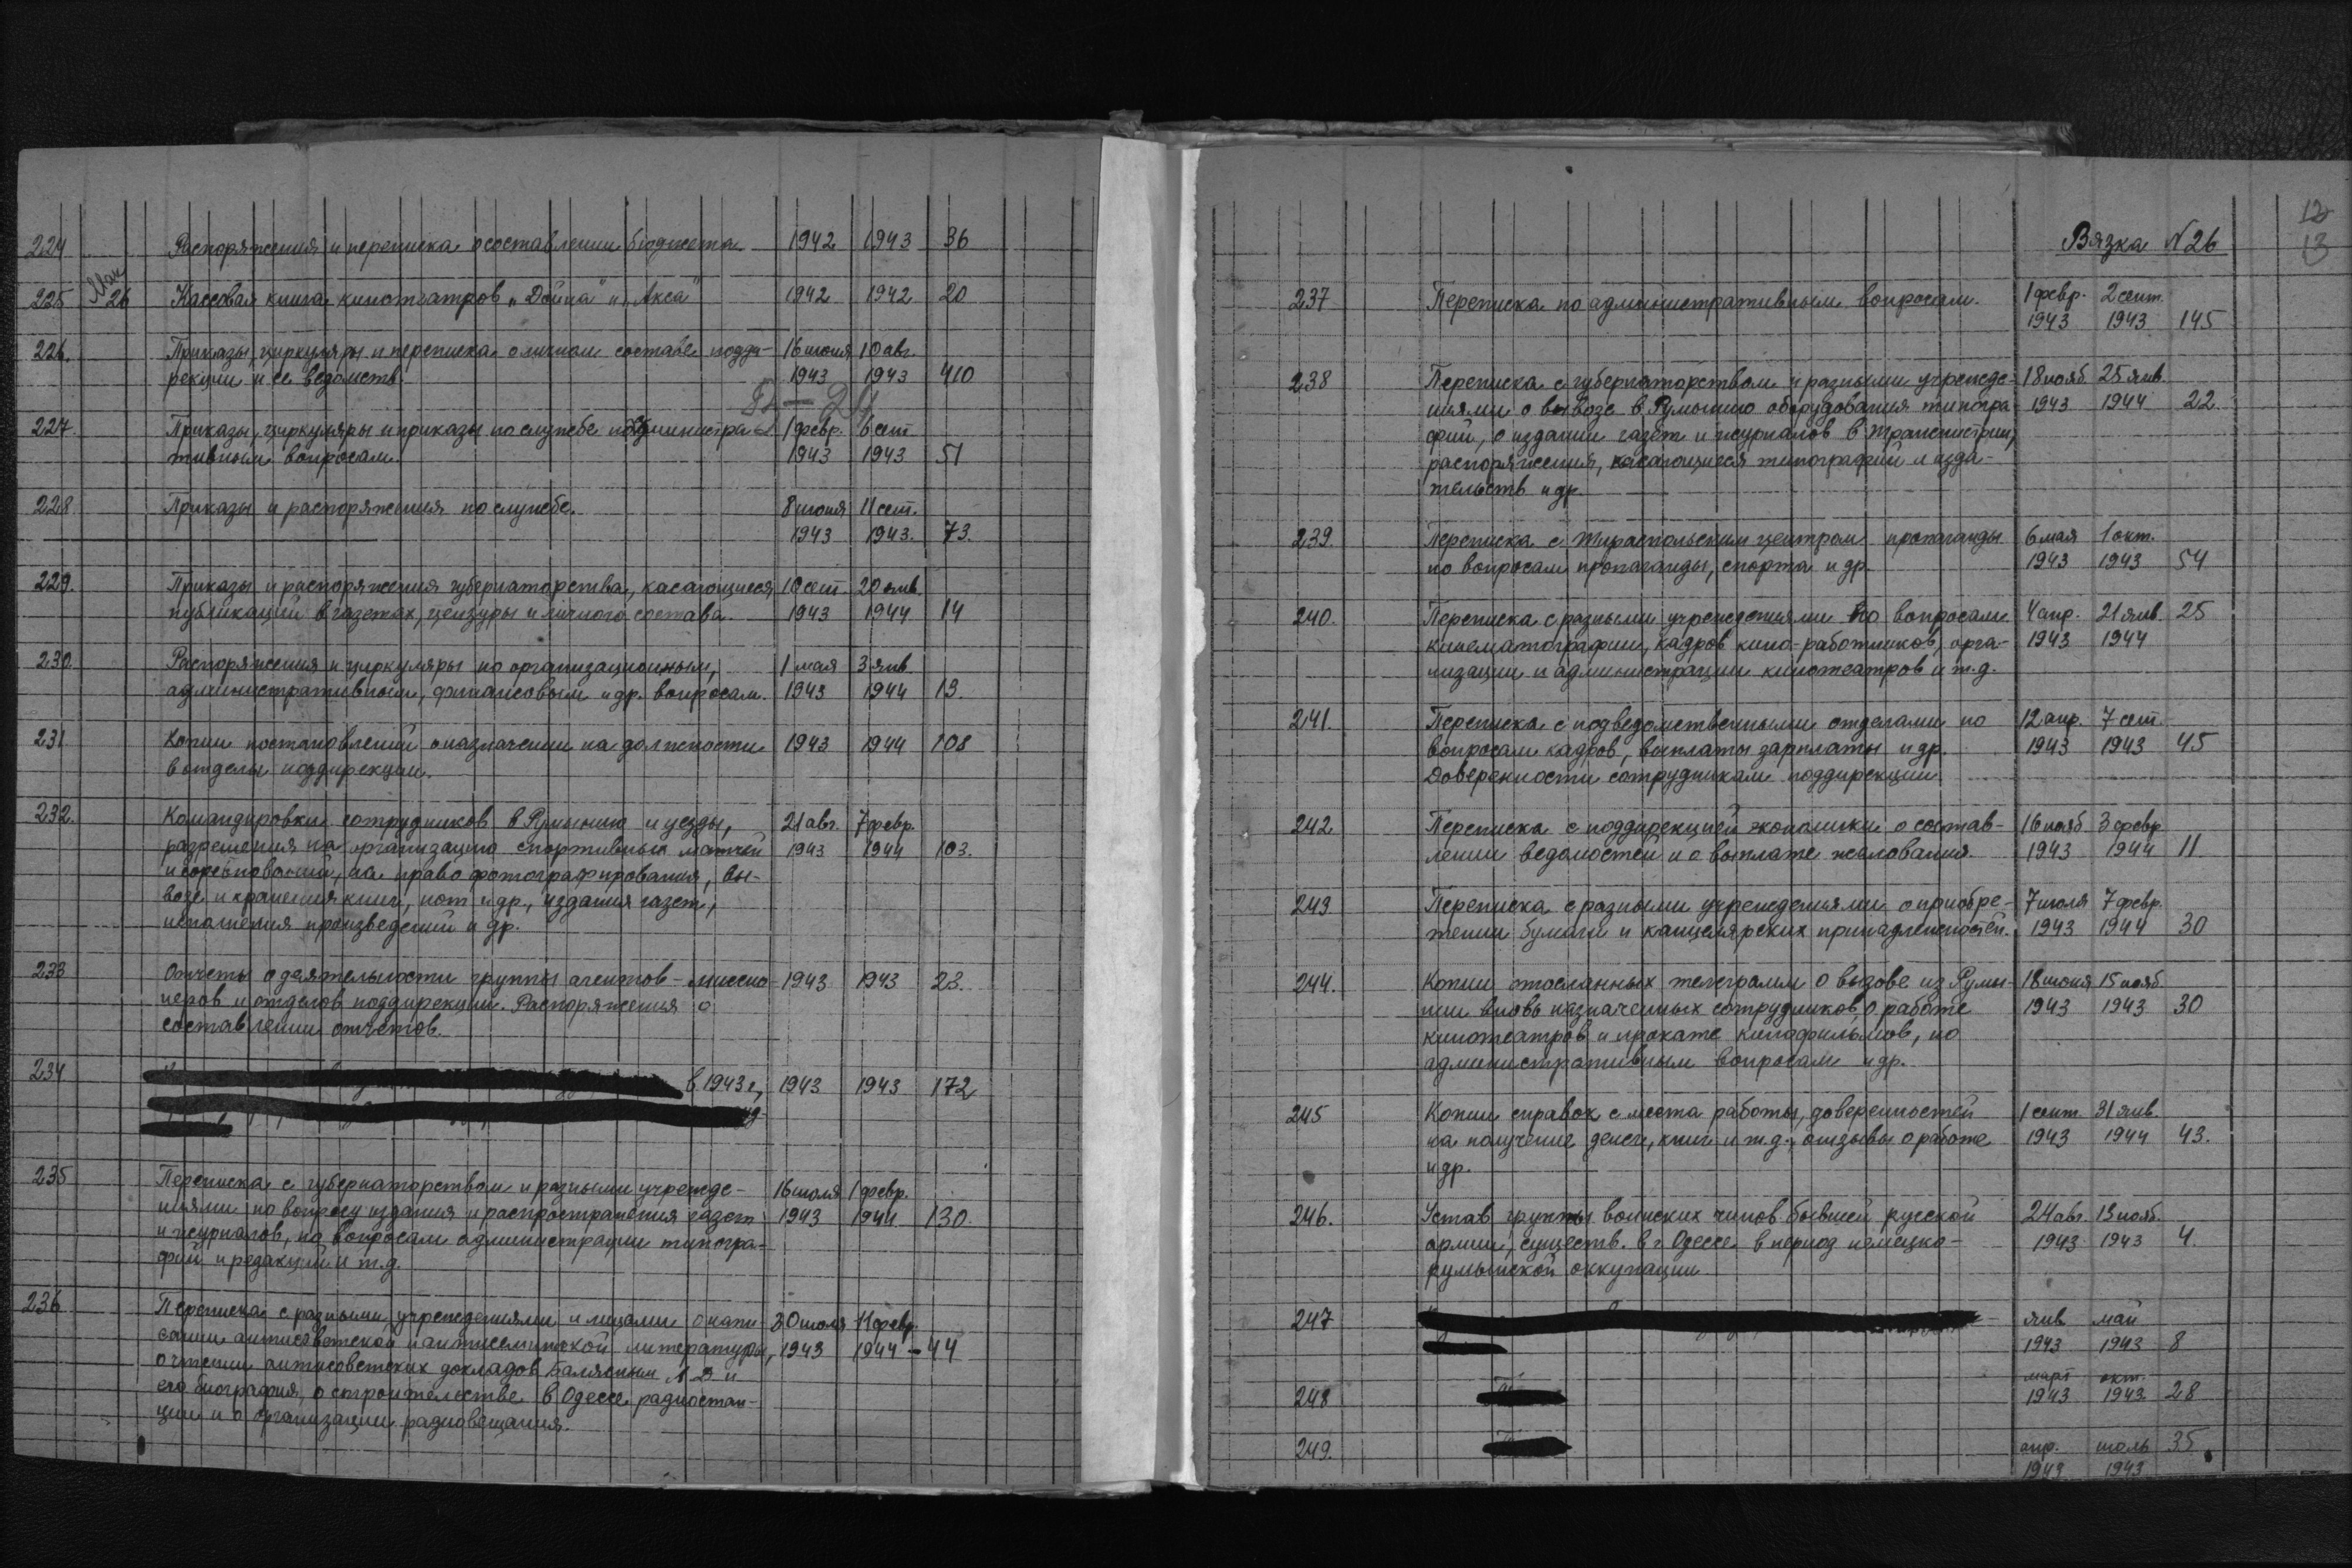 224 Распоряжения и переписка о составлении бюджета 1942 1943 36
225 26 Кассовая книга кинотеатров „Дойна" и „Акса" 1942 1942 20
226. Приказы, циркуляры и переписка о личном составе подди- 16 июня 10 авг.
рекции и ее ведомств. 1943 1943 410
227. Приказы, циркуляры и приказы по службе и администра- 1 февр. 6 сент
тивным вопросам. 1943 1943 51
228. Приказы и распоряжения по службе. 8 июня 11 сент.
1943 1943. 73.
229. Приказы и распоряжения губернаторства, касающиеся 10 сент. 20 янв.
публикаций в газетах, цензуры и личного состава. 1943 1944 14
230. Распоряжения и циркуляры по организационным, 1 мая 3 янв
административным, финансовым и др. вопросам. 1943 1944 19.
231 Копии постановлений о назначении на должности 1943 1944 108
в отделы поддирекции.
232. Командировки сотрудников в Румынию и уезды, 21 авг. 7 февр.
разрешения на организацию спортивных матчей 1943 1944 103.
и соревнований, на право фотографирования, вы-
возе и хранения книг, нот и др., издания газет,
исполнения произведений и др.
233 Отчеты о деятельности группы агентов-миссио- 1943 1943 23.
неров и отделов поддирекции. Распоряжения о
составлении отчетов.
234 в 1943 г, 1943 1943 172
235 Переписка с губернаторством и разными учрежде- 16 июля 1 февр.
ниями по вопросу издания и распространения газет 1943 1944 130.
и журналов, по вопросам администрации типогра-
фий и редакций и т.д.
236 Переписка с разными учреждениями и лицами о напи- 30 июля 11 февр.
сании антисоветской и антисемитской литературы, 1943 1944 - 44
о чтении антисоветских докладов Балясным Л.Д и
его биография, о строительстве в Одессе радиостан-
ции и о организации радиовещания.
12
13
Вязка N 26
237 Переписка по административным вопросам. 1 февр. 2 сент.
1943 1943 145
238 Переписка с губернаторством и разными учрежде- 18 нояб. 25 янв.
ниями о вывозе в Румынию оборудования типогра- 1943 1944 22
фий, о издании газет и журналов в Транснистрии,
распоряжения, касающиеся типографий и изда-
тельств и др.
239. Переписка с Тираспольским центром пропаганды 6 мая 1 окт.
по вопросам пропаганды, спорта и др. 1943 1943 54
240. Переписка с разными учреждениями по вопросам 4 апр. 21 янв. 25
кинематографии, кадров кино-работников, орга- 1943 1944
низации и администрации кинотеатров и т.д.
241. Переписка с подведомственными отделами по 12 апр. 7 сент.
вопросам кадров, выплаты зарплаты и др. 1943 1943 45
Доверенности сотрудникам поддирекции.
242 Переписка с поддирекцией экономики о состав- 16 нояб 3 февр
лении ведомостей и о выплате жалования. 1943 1944 11
243 Переписка с разными учреждениями о приобре- 7 июля 7 февр.
тении бумаги и канцелярских принадлежностей. 1943 1944 30
244. Копии посланных телеграмм о вызове из Румы- 18 июня 15 нояб
нии вновь назначенных сотрудников, о работе 1943 1943 30
кинотеатров и прокате кинофильмов, по
административным вопросам и др.
245 Копии справок с места работы, доверенностей 1 сент. 31 янв.
на получение денег, книг и т.д., отзывы о работе 1943 1944 43.
и др.
246. Устав группы воинских чинов бывшей русской 24 авг. 13 нояб.
армии, существ. в г. Одессе в период немецко- 1943 1943 4.
румынской оккупации
247 янв май
1943 1943 8
март окт.
248 1943 1943 28
249. апр. июль 35
1943 1943